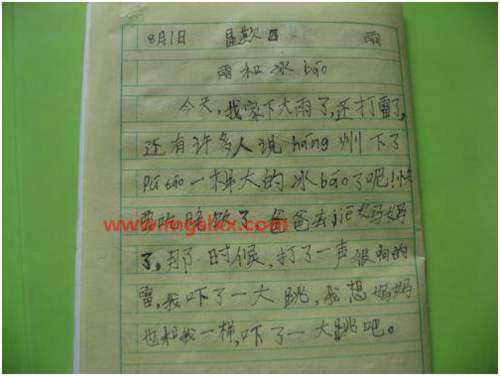 8月1日 星期日 雨
雨和冰báo
今天,我家下大雨了,还打雷了,
还有许多人说háng州下了
pú táo一样大的冰báo了呢!快
要吃晚饭了,爸爸去jiē妈妈
了,那时候,打了一声很响的
雷,我吓了一大跳,我想妈妈
也和我一样,吓了一大跳吧。